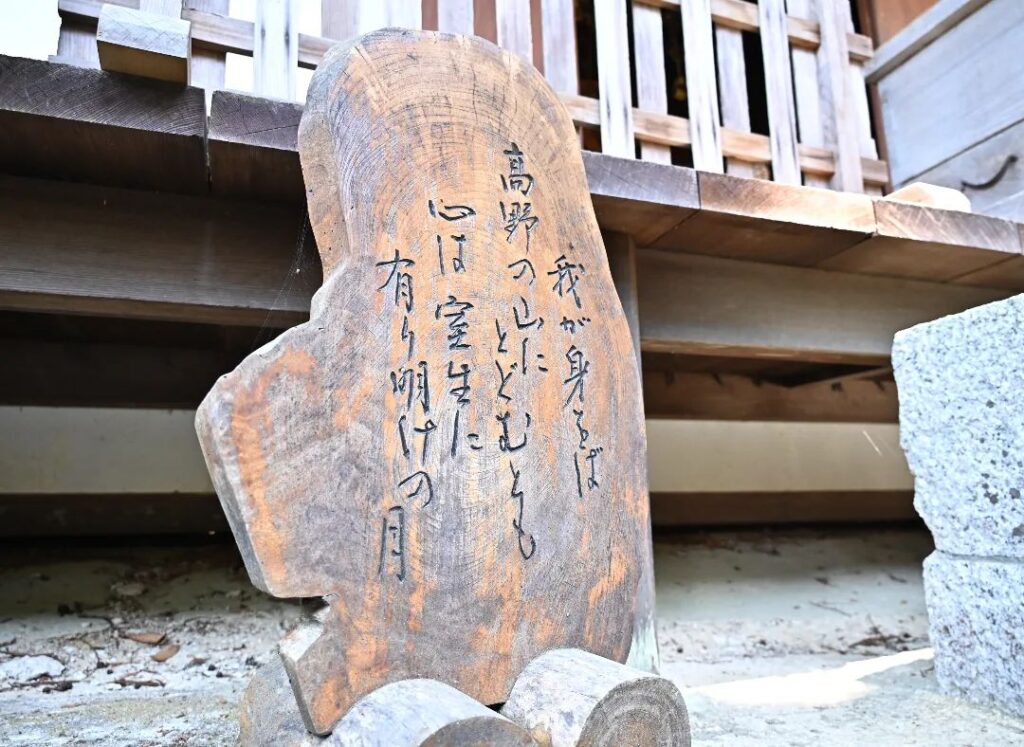 我が身をば
高野の山に
とどむとも
心は室生に
有り明けの月